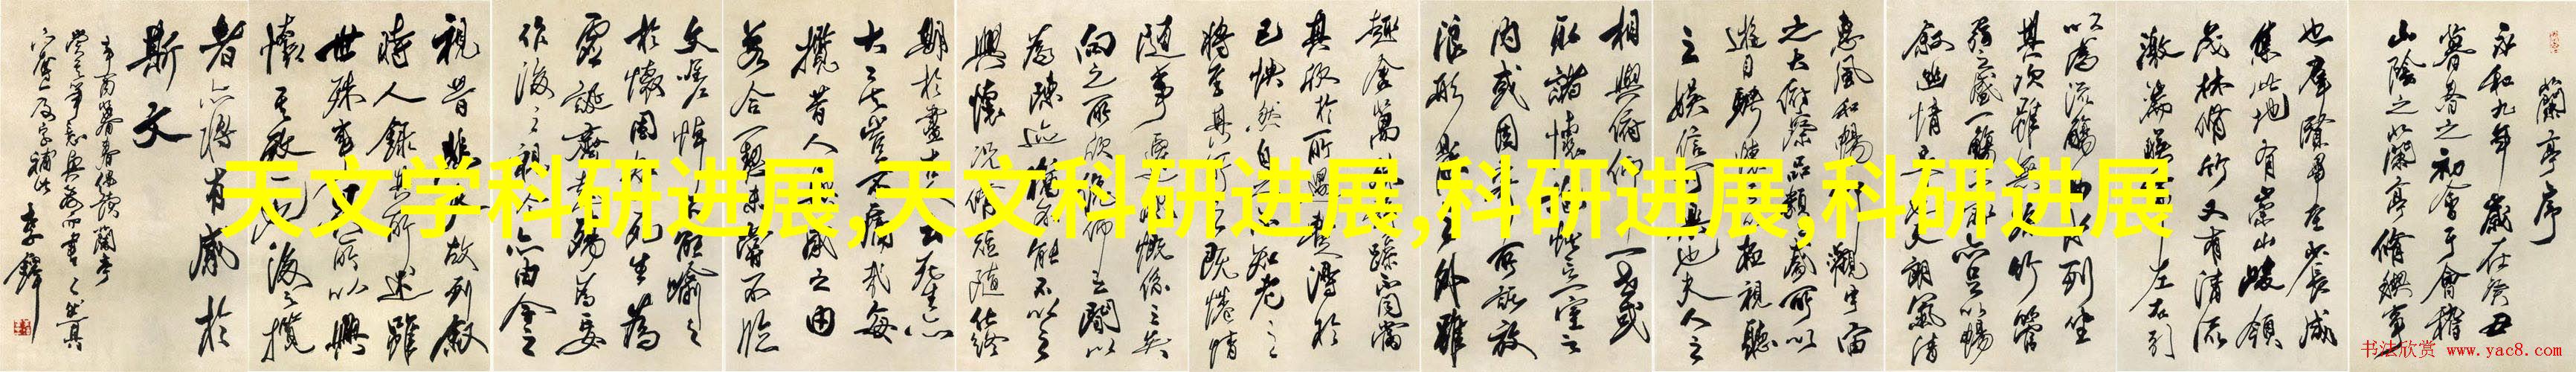 蘭亭序
永和九年歲在癸丑
暮春之初會于會稽
山陰之蘭亭脩禊事
也群賢畢至少長咸
集此地有崇山峻領
茂林脩竹又有清流
激湍暎帶左右引
以為流觴曲水列坐
其次雖無絲竹管
弦之盛一觴一詠亦足以暢
敘幽情是日也天朗氣清
惠風和暢仰觀宇宙
之大俯察品類之盛所以
遊目騁懷足以極視聽
之娛信可樂也夫人之
相與俯仰一世或
取諸懷抱悟言一室之
內或因寄所託放
浪形骸之外雖
趣舍萬殊靜躁不同當
其欣於所遇暫得於
己怏然自足不知老之
將至及其所之既惓情
隨事遷感慨係之矣
向之所欣俛仰之間以
為陳迹猶不能不以之
興懷況脩短隨化終
期於盡古人云死生亦
大矣豈不痛哉每
攬昔人興感之由
若合一契未嘗不臨
文嗟悼不能喻之
於懷固知死生為
虛誕齊彭殤為妄
作後之視今亦由今之
視昔悲夫故列敘
時人錄其所述雖
世殊事異所以興
懷其致一也後之攬
者亦將有感於
斯文
辛酉暮春偶讀蘭亭
李鐸
天文学科研进展,天文科研进展,科研进展,科研进展
书法欣赏 www.yac8.com